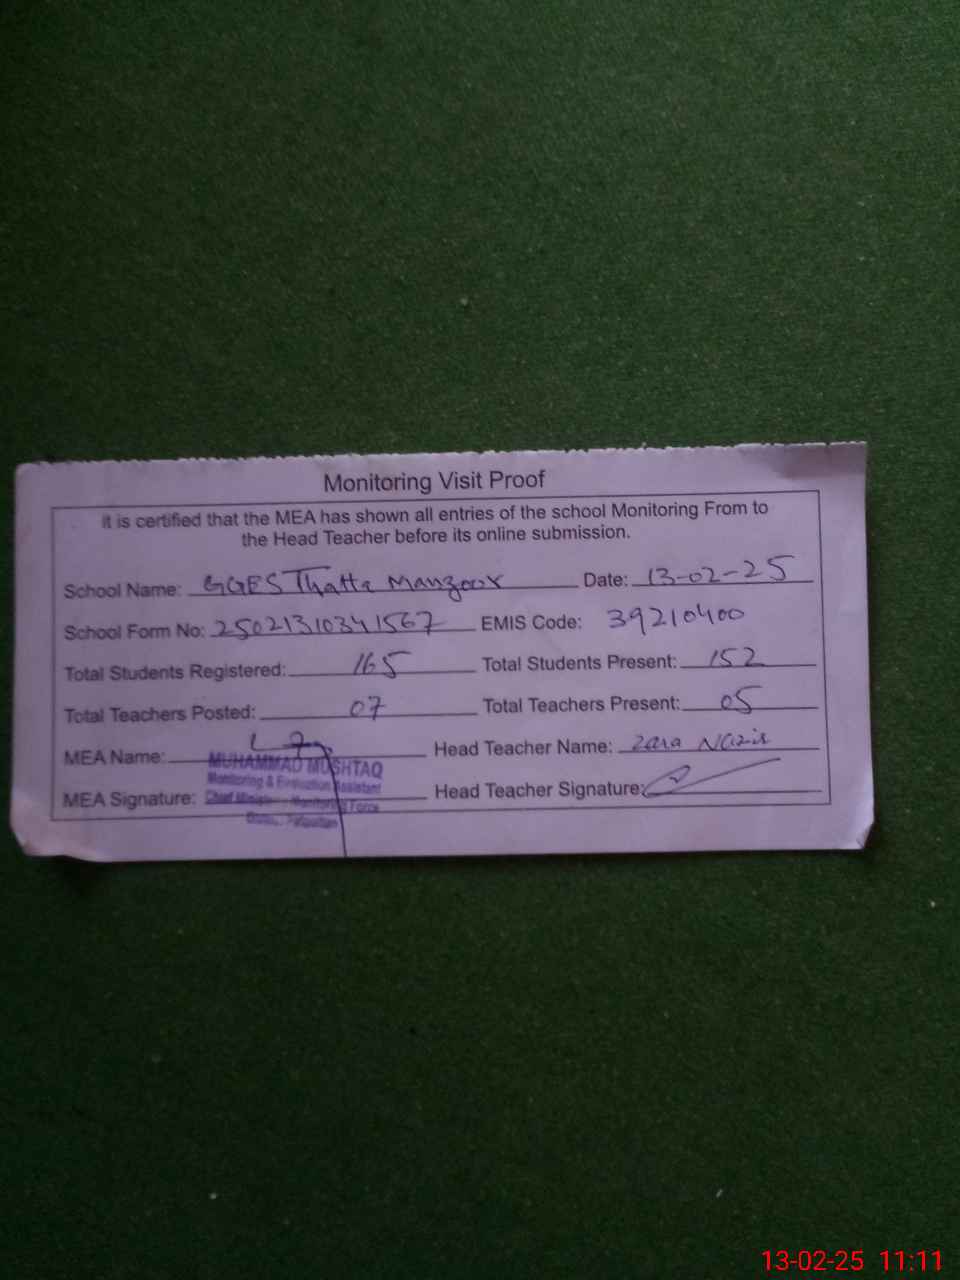 Monitoring Visit Proof
it is certified that the MEA has shown all entries of the school Monitoring From to
the Head Teacher before its online submission.
School Name: GGES Thatta Manzoor Date: 13-02-25
School Form No: 25021310341567 EMIS Code: 39210400
Total Students Registered: 165 Total Students Present: 152
Total Teachers Posted: 07 Total Teachers Present: 05
MEA Name: Head Teacher Name: Zara Nazir
MUHAMMAD MUSHTAQ
Monitoring & Evaluation Assistant
MEA Signature: Head Teacher Signature:
Chief Monitoring Force
13-02-25 11:11